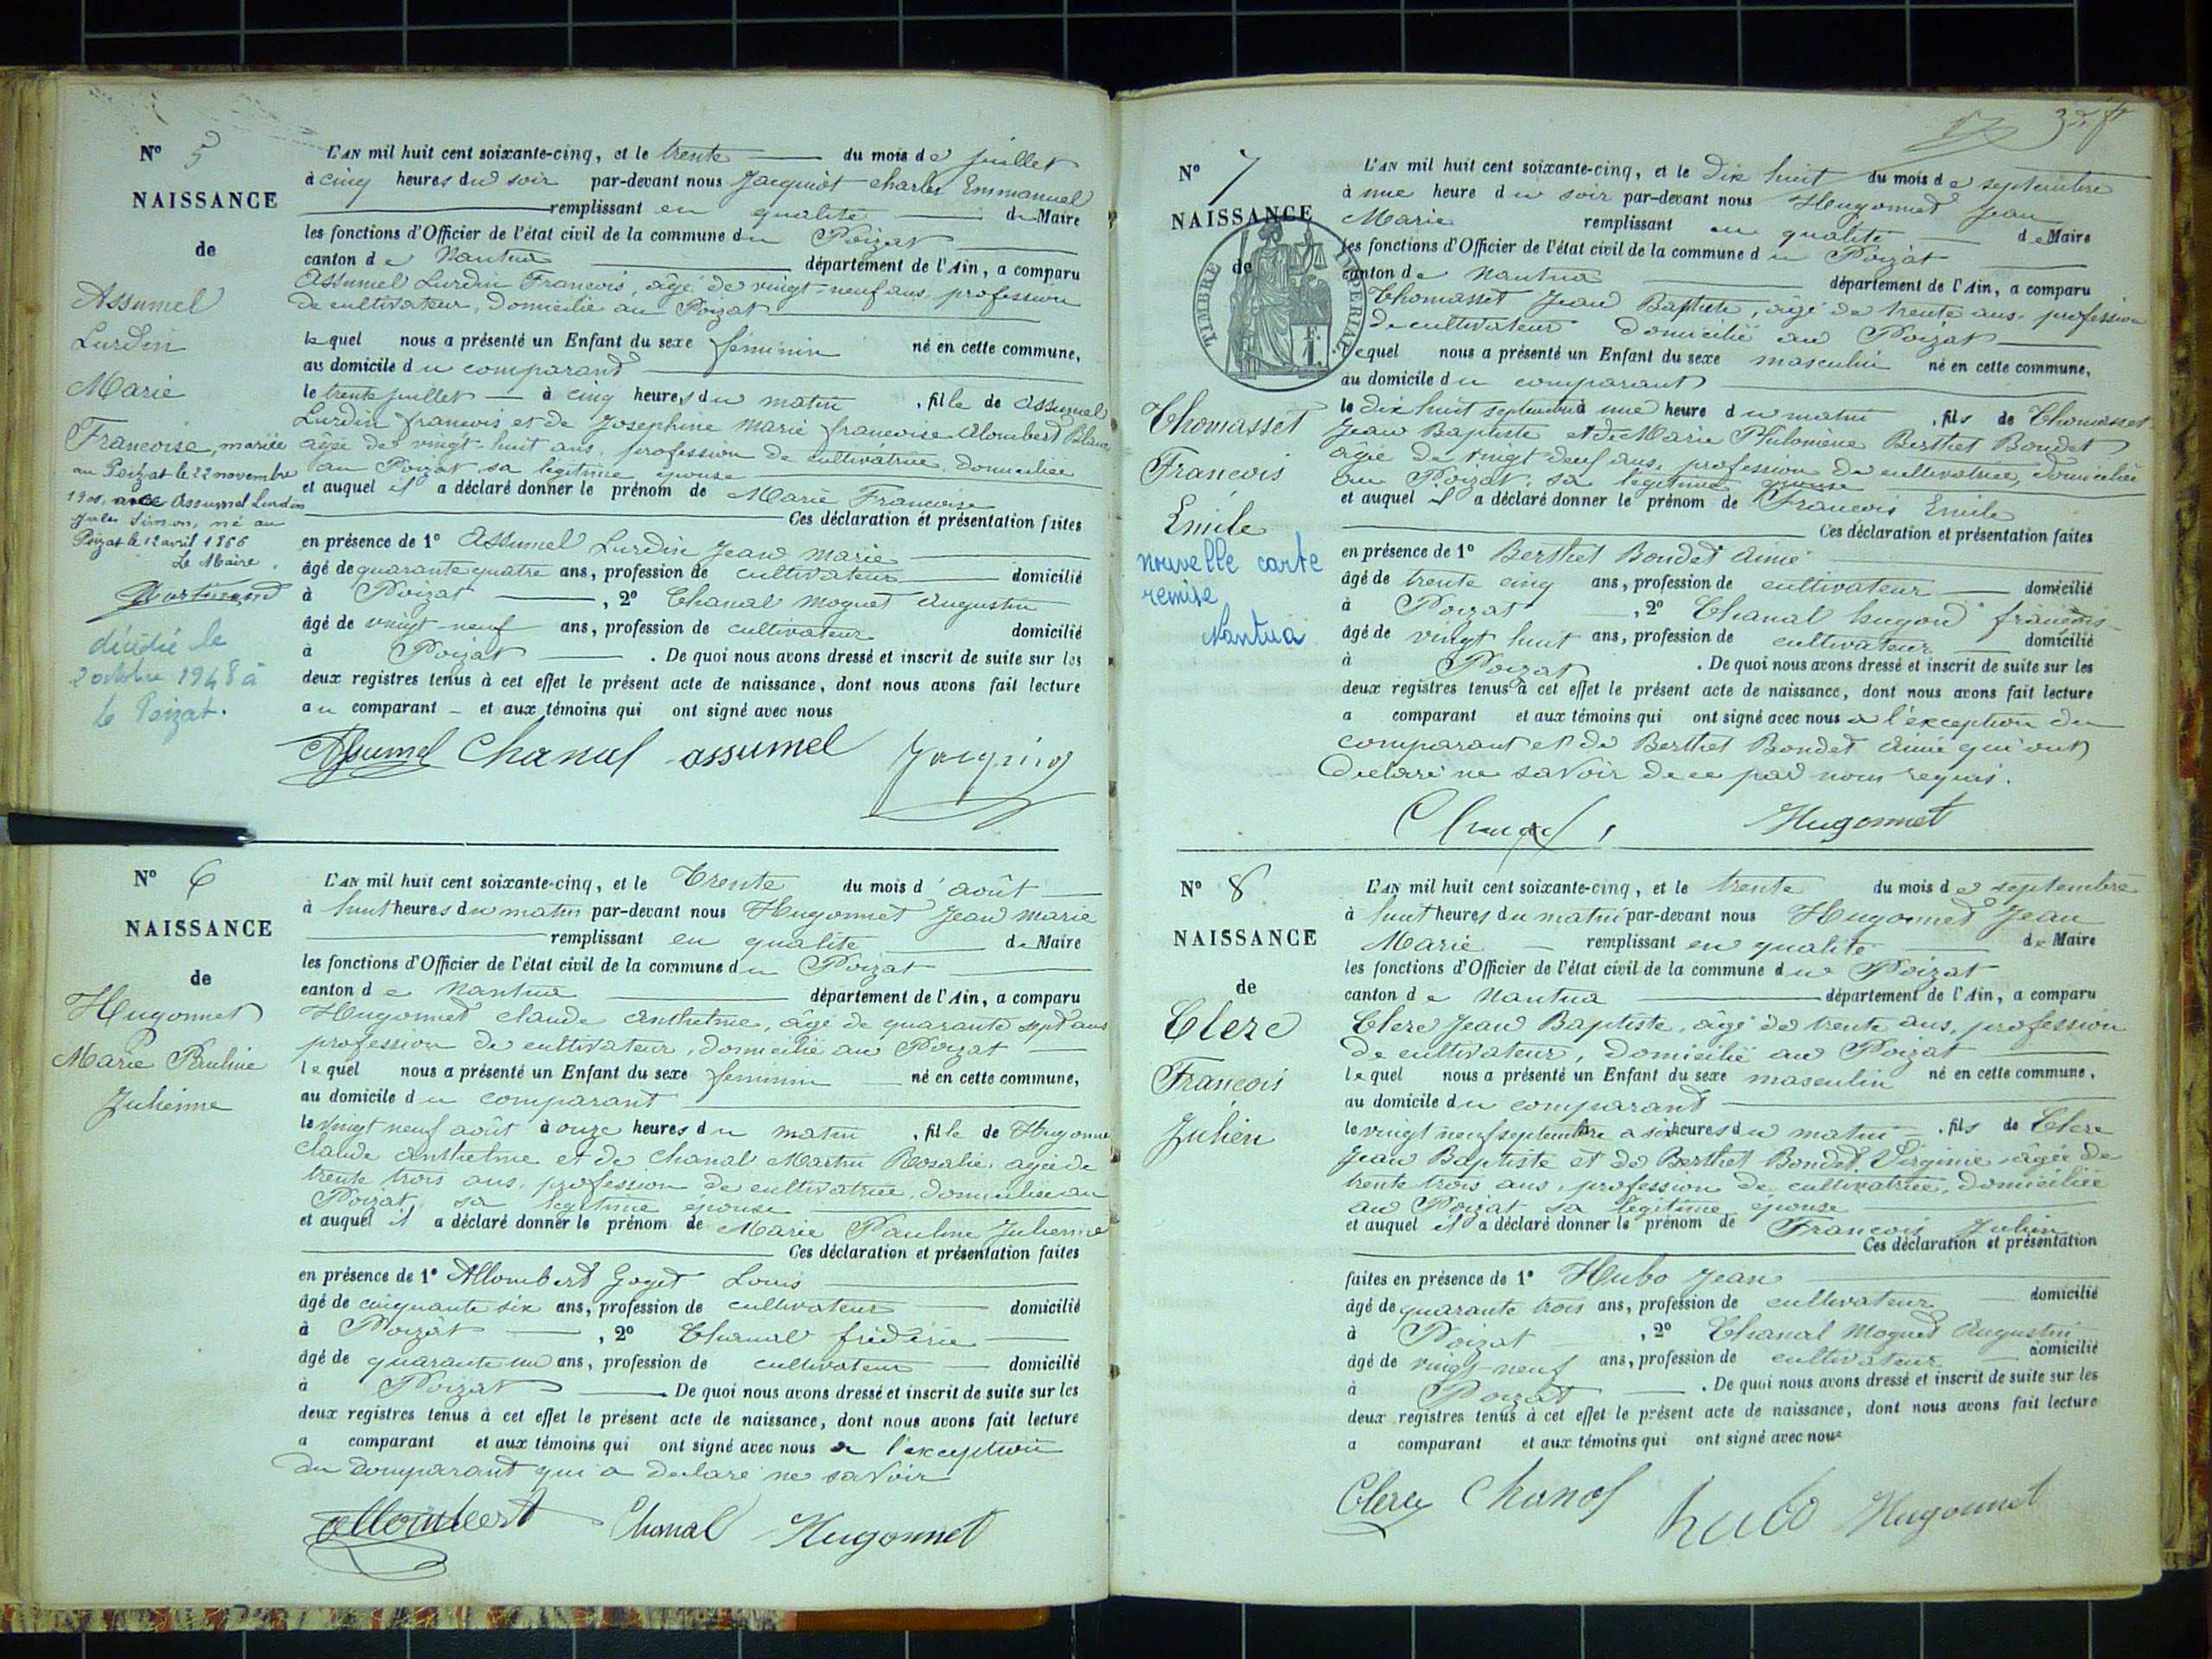 N° 5
NAISSANCE
de
Assumel
Lurdin
Marie
Francoise, mariée
au Poizat le 22 novembre
avec Assumel Lurdin
Jules Simon, né au
Poizat le 12 avril 1866
Le Maire
décédée le
2 octobre 1948 à
le Poizat.
L'AN mil huit cent soixante-cinq, et le trente du mois de juillet
à cinq heures du soir par-devant nous Jacquiot charles Emmanuel
remplissant en qualité de Maire
les fonctions d'Officier de l'état civil de la commune du Poizat
canton de Nantua département de l'Ain, a comparu
Assumel Lurdin Francois, âgé de vingt-neuf ans profession
de cultivateur, domicilié au Poizat
lequel nous a présenté un Enfant du sexe feminin né en cette commune,
au domicile du comparand
le trente juillet à cinq heures du matin, fille de Assumel
Lurdin francois et de Josephine Marie francoise Alombert Blanc
âgée de vingt-huit ans, profession de cultivatrice, domiciliée
au Poizat, sa legitime épouse
et auquel il a déclaré donner le prénom de Marie Francoise
Ces déclaration et présentation faites
en présence de 1° Assumel Lurdin Jean Marie
âgé de quarante quatre ans, profession de cultivateur domicilié
à Poizat, 2° Chanal Moguet Augustin
âgé de vingt-neuf ans, profession de cultivateur domicilié
à Poizat. De quoi nous avons dressé et inscrit de suite sur les
deux registres tenus à cet effet le présent acte de naissance, dont nous avons fait lecture
au comparant et aux témoins qui ont signé avec nous
Assumel Chanal assumel
N° 6
NAISSANCE
de
Hugonnet
Marie Pauline
Julienne
L'AN mil huit cent soixante-cinq, et le Trente du mois d'août
à huit heures du matin par-devant nous Hugonnet Jean marie
remplissant en qualité de Maire
les fonctions d'Officier de l'état civil de la commune du Poizat
canton de Nantua département de l'Ain, a comparu
Hugonnet claude anthelme, âgé de quarante sept ans
profession de cultivateur, domicilié au Poizat
lequel nous a présenté un Enfant du sexe feminin né en cette commune,
au domicile du comparant
le vingt neuf août à onze heures du matin, fille de Hugonne
claude anthelme et de Chanal Martin Rosalie, agée de
trente trois ans, profession de cultivatrice, domiciliée au
Poizat sa legitime épouse
et auquel il a déclaré donner le prénom de Marie Pauline Julienne
Ces déclaration et présentation faites
en présence de 1° Allombert Goget Louis
âgé de cinquante six ans, profession de cultivateur domicilié
à Poizat, 2° Chanal fréderic
âgé de quarante un ans, profession de cultivateur domicilié
à Poizat. De quoi nous avons dressé et inscrit de suite sur les
deux registres tenus à cet effet le présent acte de naissance, dont nous avons fait lecture
a comparant et aux témoins qui ont signé avec nous a l'exception
du comparant qui a declaré ne savoir
Allombert Chanal Hugonnet
N° 7
NAISSANCE
de
TIMBRE IMPERIAL
Thomasset
Francois
Emile
nouvelle carte
remise
Nantua
L'AN mil huit cent soixante-cinq, et le Dix huit du mois de septembre
à une heure du soir par-devant nous Hugonnet Jean
Marie remplissant en qualité de Maire
les fonctions d'Officier de l'état civil de la commune du Poizat
canton de Nantua département de l'Ain, a comparu
Thomasset Jean Baptiste, âgé de trente ans profession
de cultivateur domicilié au Poizat
lequel nous a présenté un Enfant du sexe masculin né en cette commune,
au domicile du comparant
le dix huit septembre à une heure du matin, fils de Thomasset
Jean Baptiste et de Marie Philomène Berthet Bondet
âgée de vingt deuf ans, profession de cultivatrice, domiciliée
au Poizat, sa légitime épouse
et auquel il a déclaré donner le prénom de Francois Emile
Ces déclaration et présentation faites
en présence de 1° Berthet Bondet Aimé
âgé de trente cinq ans, profession de cultivateur domicilié
à Poizat, 2° Chanal hugon francois
âgé de vingt huit ans, profession de cultivateur domicilié
à Poizat. De quoi nous avons dressé et inscrit de suite sur les
deux registres tenus à cet effet le présent acte de naissance, dont nous avons fait lecture
a comparant et aux témoins qui ont signé avec nous a l'exception du
comparant et de Berthet Bondet Aimé qui ont
declaré ne savoir de ce par nous requis.
Hugonnet
N° 8
NAISSANCE
de
Clerc
François
Julien
L'AN mil huit cent soixante-cinq, et le trente du mois de septembre
à huit heures du matin par-devant nous Hugonnet Jean
Marie remplissant en qualité de Maire
les fonctions d'Officier de l'état civil de la commune du Poizat
canton de Nantua département de l'Ain, a comparu
Clerc Jean Baptiste, âgé de trente ans, profession
de cultivateur, domicilié au Poizat
lequel nous a présenté un Enfant du sexe masculin né en cette commune,
au domicile du comparant
le vingt neuf septembre a six heures du matin, fils de Clerc
Jean Baptiste et de Berthet Bondet Virginie âgée de
trente trois ans, profession de cultivatrice, domiciliée
au Poizat sa légitime épouse
et auquel il a déclaré donner le prénom de François Julien
Ces déclaration et présentation
faites en présence de 1° Hubo Jean
âgé de quarante trois ans, profession de cultivateur domicilié
à Poizat, 2° Chanal Moguet Augustin
âgé de vingt-neuf ans, profession de cultivateur domicilié
à Poizat. De quoi nous avons dressé et inscrit de suite sur les
deux registres tenus à cet effet le présent acte de naissance, dont nous avons fait lecture
a comparant et aux témoins qui ont signé avec nous
Clerc Chanal hubo Hugonnet